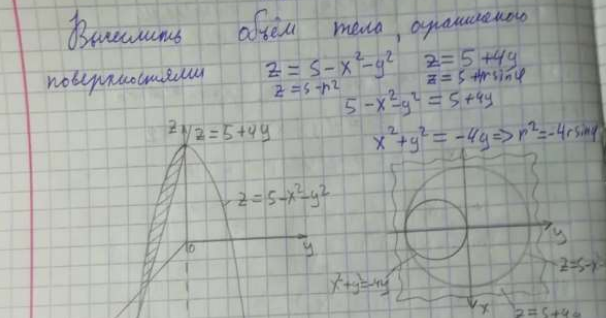 Вычислить объём тела, ограниченного
поверхностями z = 5 - x² - y² z = 5 + 4y
z = 5 - r² z = 5 + 4r sinφ
5 - x² - y² = 5 + 4y
x² + y² = -4y => r² = -4r sinφ
z z = 5 + 4y
z = 5 - x² - y²
0 y
y
x² + y² = -4y
z = 5 - x
x z = 5 + 4y